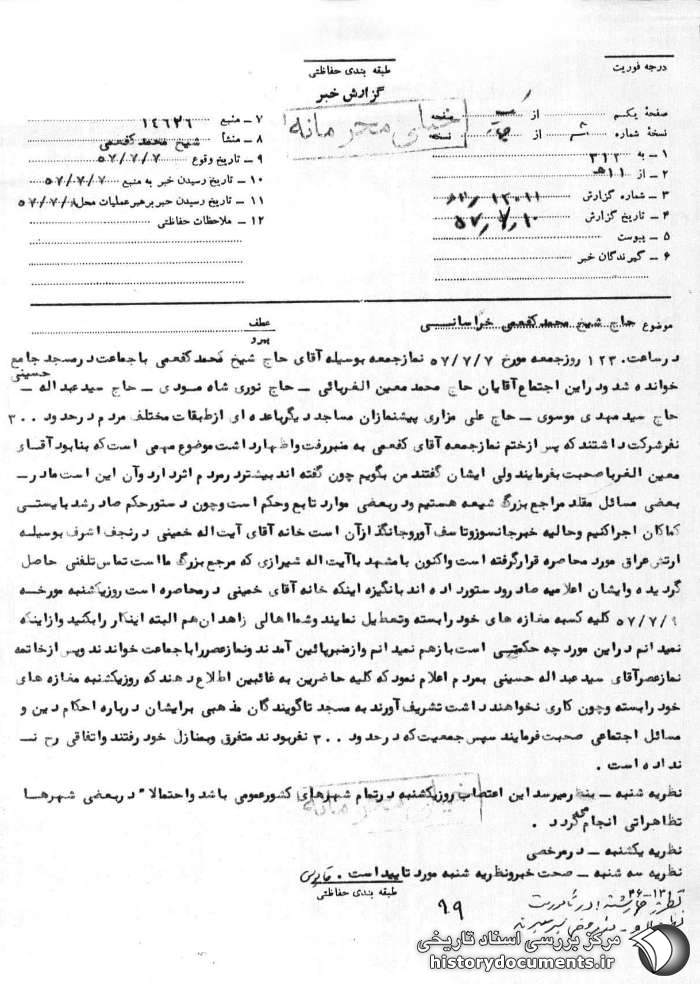 درجه فوریت
طبقه بندی حفاظتی
گزارش خبر
خیلی محرمانه
صفحهٔ یکم از صفحه
نسخهٔ شماره از نسخه
۱ ــ به ۳۱۲
۲ ــ از ۱۱ ه‍
۳ ــ شماره گزارش
۴ ــ تاریخ گزارش ۵۷٫۷٫۱۰
۵ ــ پیوست
۶ ــ گیرندگان خبر
۷ ــ منبع ۱٤٦۲٦
۸ ــ منشأ شیخ محمد کفعمی
۹ ــ تاریخ وقوع ۵۷/۷/۷
۱۰ ــ تاریخ رسیدن خبر به منبع ۵۷/۷/۷
۱۱ ــ تاریخ رسیدن خبر برهبر عملیات محل ۵۷/۷/۸
۱۲ ــ ملاحظات حفاظتی
موضوع حاج شیخ محمد کفعمی خراسانی
عطف
پیرو
در ساعت ۱۲۳۰ روز جمعه مورخ ۵۷/۷/۷ نماز جمعه بوسیله آقای حاج شیخ محمد کفعمی با جماعت در مسجد جامع
خوانده شد و در این اجتماع آقایان حاج محمد معین الغربائی ــ حاج نوری شاه مسودی ــ حاج سید عبداله حسینی ــ
حاج سید مهدی موسوی ــ حاج علی مزاری پیشنمازان مساجد دیگر با عده ای از طبقات مختلف مردم در حدود ۳۰۰
نفر شرکت داشتند که پس از ختم نماز جمعه آقای کفعمی به منبر رفت و اظهار داشت موضوع مهمی است که بنا بود آقای
معین الغربا صحبت بفرمایند ولی ایشان گفتند من بگویم چون گفته اند بیشتر در مردم اثر دارد و آن این است ما در ــ
بعضی مسائل مقلد مراجع بزرگ شیعه هستیم و در بعضی موارد تابع و حکم است و چون دستور حکم صادر شد بایستی
کماکان اجرا کنیم و حالیه خبر جانسوز و تاسف آور و جانگداز آن است خانه آقای آیت اله خمینی در نجف اشرف بوسیله
ارتش عراق مورد محاصره قرار گرفته است و اکنون با مشهد با آیت اله شیرازی که مرجع بزرگ ما است تماس تلفنی حاصل
گردیده و ایشان اعلامیه صادر و دستور داده اند با نگیزه اینکه خانه آقای خمینی در محاصره است روز یکشنبه مورخه
۵۷/۷/۹ کلیه کسبه مغازه های خود را بسته و تعطیل نمایند و شما اهالی زاهدان هم البته اینکار را بکنید و از اینکه
نمیدانم در این مورد چه حکمتیسی است باز هم نمیدانم و از منبر پائین آمدند و نماز عصر را با جماعت خواندند و پس از خاتمه
نماز عصر آقای سید عبداله حسینی بمردم اعلام نمود که کلیه حاضرین به غائبین اطلاع دهند که روز یکشنبه مغازه های
خود را بسته و چون کاری نخواهند داشت تشریف آورند به مسجد تا گویندگان مذهبی برایشان درباره احکام دین و
مسائل اجتماعی صحبت فرمایند سپس جمعیت که در حدود ۳۰۰ نفر بودند متفرق و بمنازل خود رفتند و اتفاقی رخ نــ
نداده است .
نظریه شنبه ــ بنظر میرسد این اعتصاب روز یکشنبه در تمام شهرهای کشور عمومی باشد و احتمالا" در بعضی شهرها
تظاهراتی انجام میگردد .
نظریه یکشنبه ــ در مرخصی
نظریه سه شنبه ــ صحت خبر و نظریه شنبه مورد تایید است .
خیلی محرمانه
طبقه بندی حفاظتی
۹۹
مرکز بررسی اسناد تاریخی
historydocuments.ir